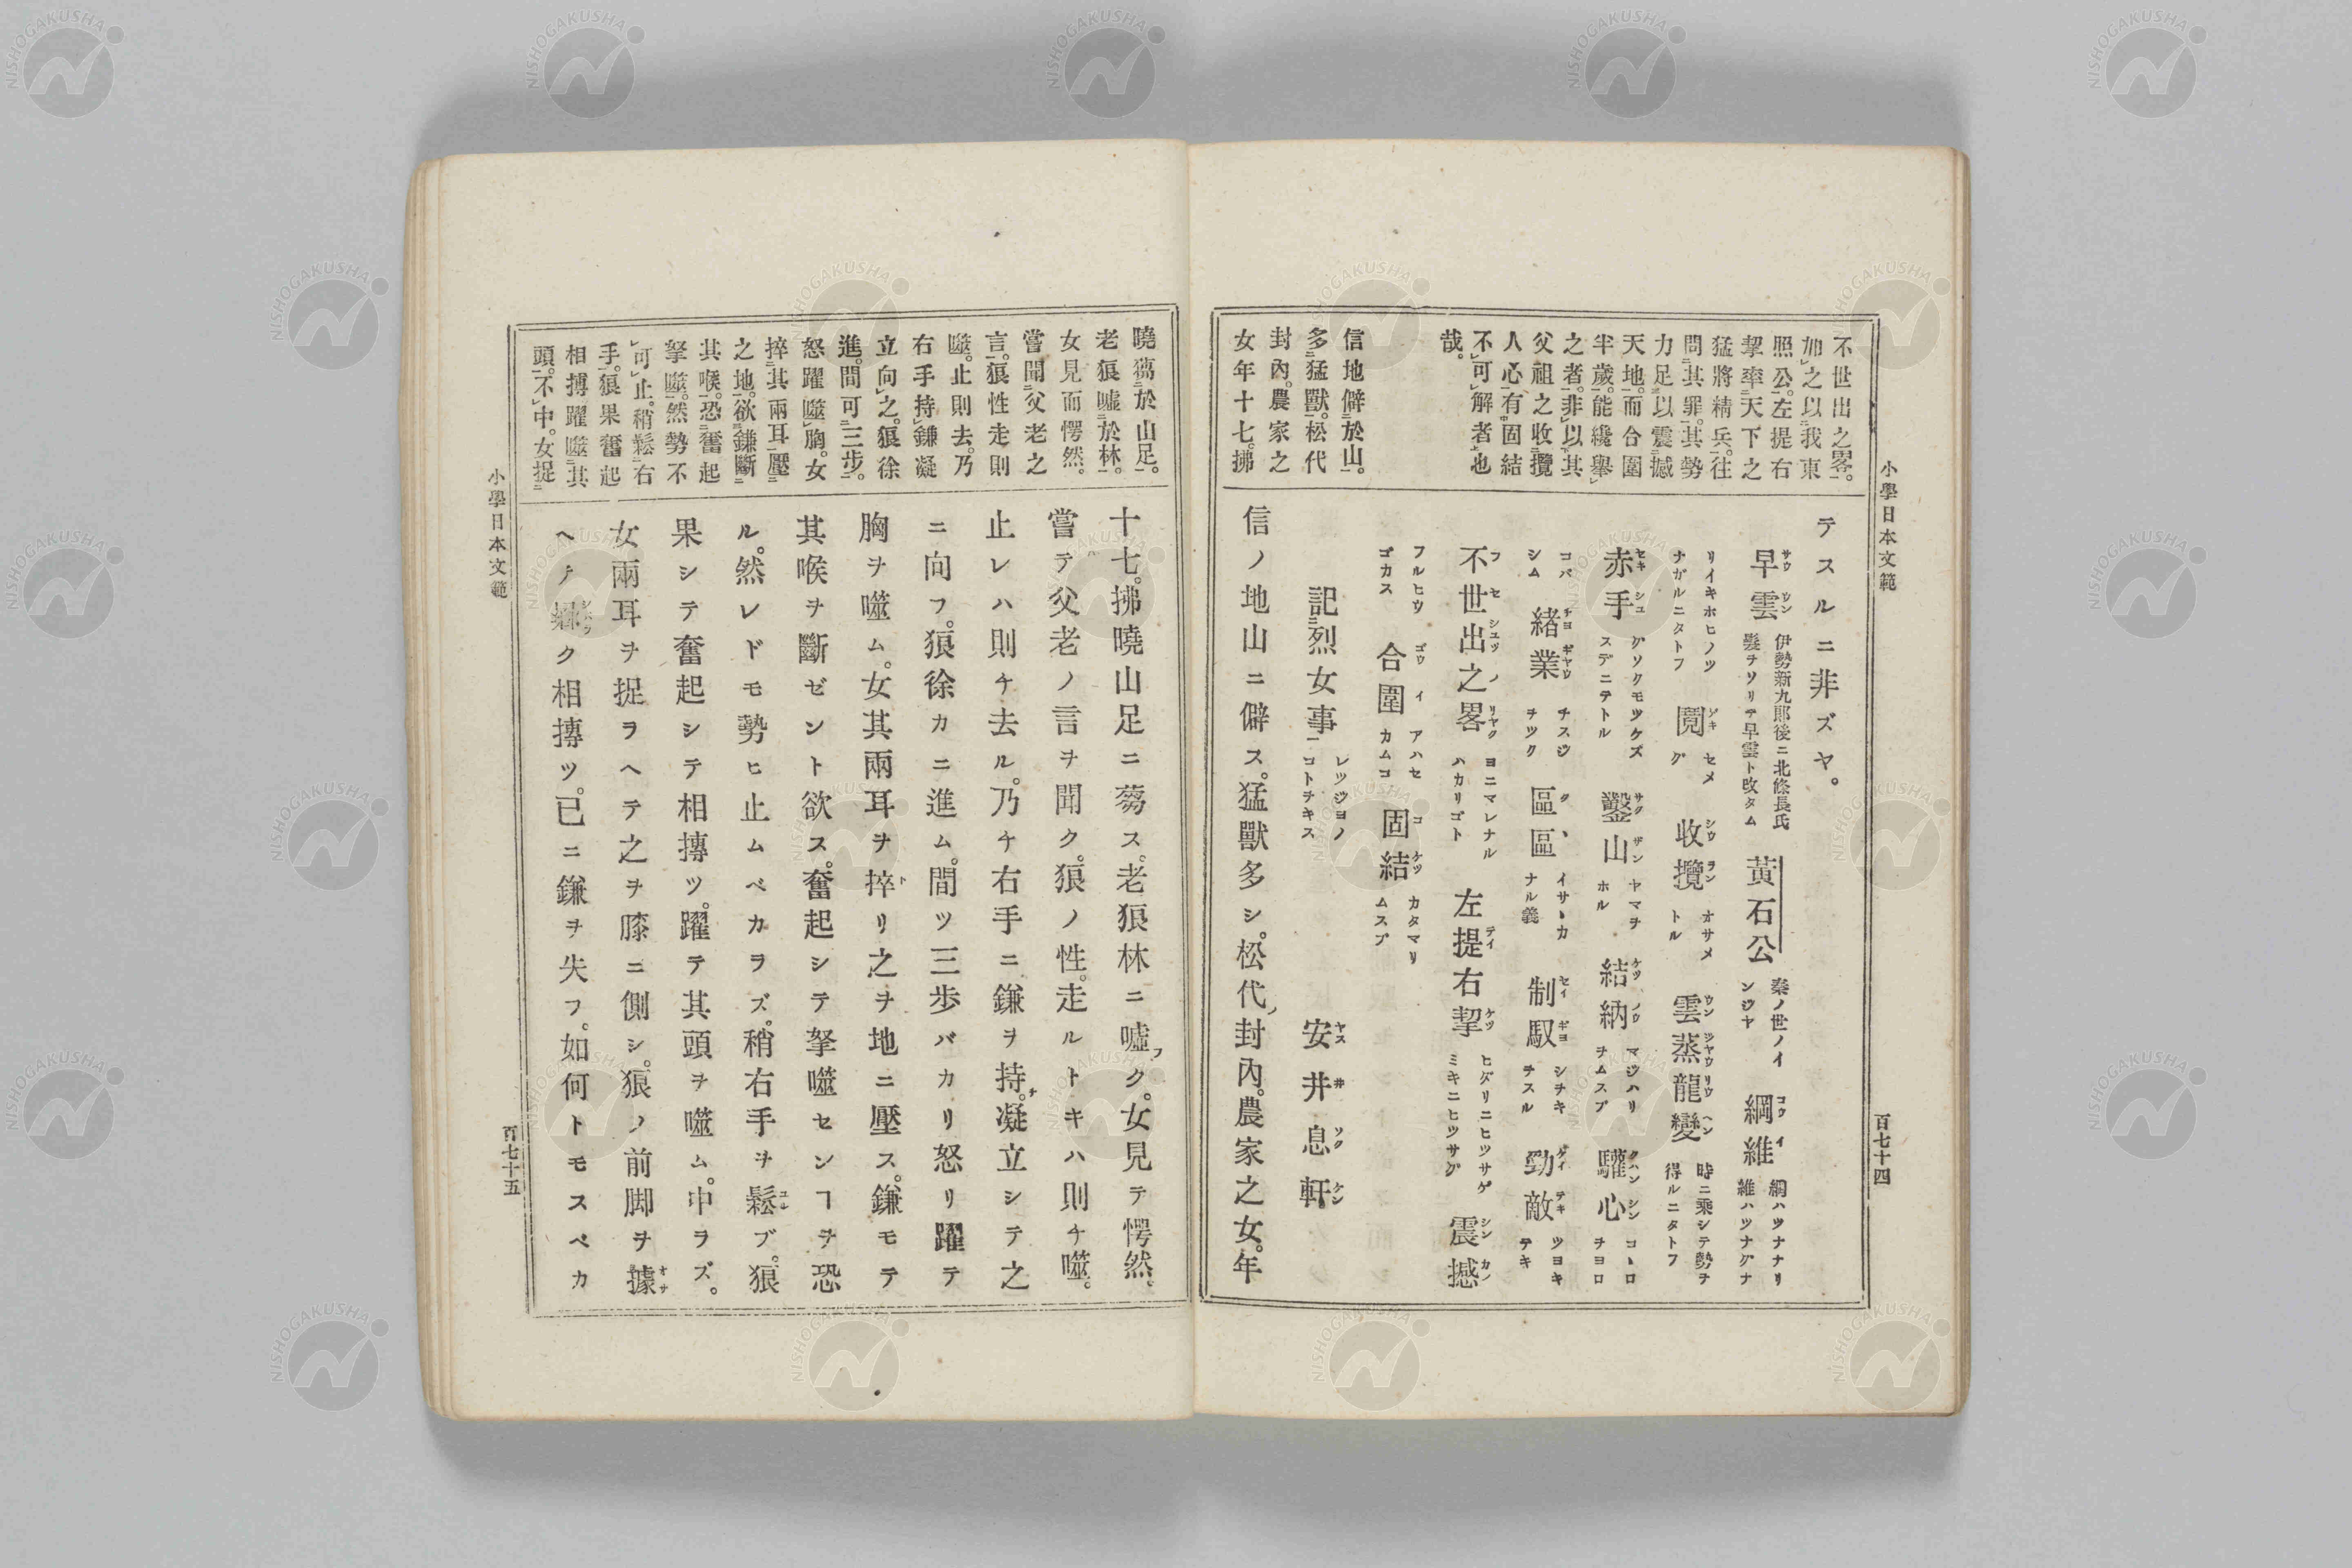 小學日本文範
百七十四
不世出之畧。
加之以我東
照公。左提右
挈率天下之
猛將精兵。往
問其罪。其勢
力足以震撼
天地。而合圍
半歲。能纔擧
之者。非以其
父祖之收攬
人心有固結
不可解者也
哉。
信地僻於山。
多猛獸。松代
封內。農家之
女年十七。拂
テスルニ非ズヤ。
早雲 伊勢新九郎後ニ北條長氏髮ヲソリテ早雲ト改タム 黃石公 秦ノ世ノインジヤ 綱維 綱ハツナナリ維ハツナグナ
リイキホヒノツナガルニタトフ 鬩 セメグ 收攬 オサメトル 雲蒸龍變 時ニ乘シテ勢ヲ得ルニタトフ
赤手 グソクモツケズスデニテトル 鑿山 ヤマヲホル 結納 マジハリヲムスブ 驩心 コヽロヲヨロ
コバシム 緖業 チスジヲツグ 區區 イサヽカナル義 制馭 シヂキヲスル 勁敵 ツヨキテキ
不世出之畧 ヨニマレナルハカリゴト 左提右挈 ヒダリニヒツサゲミキニヒツサグ 震撼
フルヒウゴカス 合圍 アハセカムコ 固結 カタマリムスブ
記烈女事 レツジヨノコトヲキス 安井息軒
信ノ地山ニ僻ス。猛獸多シ。松代ノ封內。農家之女。年
小學日本文範
百七十五
曉蒭於山足。
老狼嘘於林。
女見而愕然。
嘗聞父老之
言。狼性走則
噬。止則去。乃
右手持鎌凝
立向之。狼徐
進。間可三步。
怒躍噬胸。女
捽其兩耳壓
之地。欲鎌斷
其喉。恐奮起
拏噬。然勢不
可止。稍鬆右
手。狼果奮起
相搏躍噬其
頭。不中。女捉
十七。拂曉山足ニ蒭ス。老狼林ニ嘘ク。女見テ愕然。
嘗テ父老ノ言ヲ聞ク。狼ノ性。走ルトキハ則チ噬。
止レハ則チ去ル。乃チ右手ニ鎌ヲ持。凝立シテ之
ニ向フ。狼徐カニ進ム。間ツ三步バカリ怒リ躍テ
胸ヲ噬ム。女其兩耳ヲ捽リ之ヲ地ニ壓ス。鎌モテ
其喉ヲ斷ゼント欲ス。奮起シテ拏噬センヿヲ恐
ル。然レドモ勢ヒ止ムベカラズ。稍右手ヲ鬆ブ。狼
果シテ奮起シテ相搏ツ。躍テ其頭ヲ噬ム。中ラズ。
女兩耳ヲ捉ヲヘテ之ヲ膝ニ側シ。狼ノ前脚ヲ據
ヘテク相搏ツ。已ニ鎌ヲ失フ。如何トモスベカ